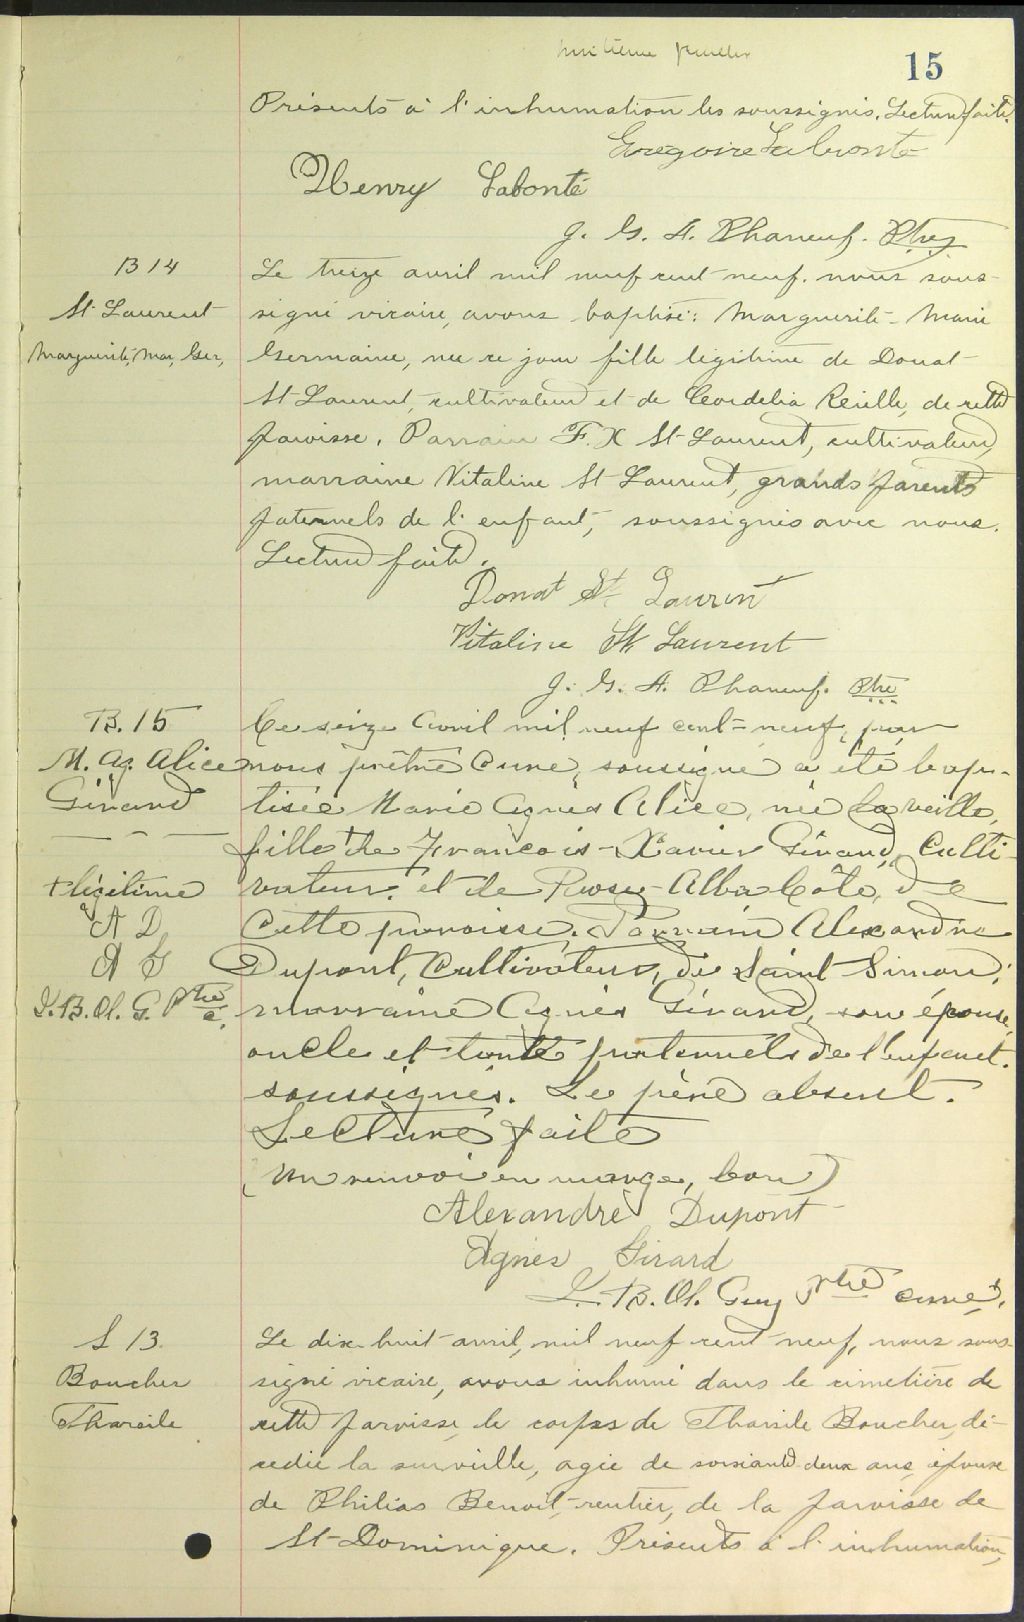 huitième feuillet
15
Présents à l'inhumation les soussignés. Lecture faite.
Grégoire Labonté
Henry Labonté
J. G. A. Phaneuf. Ptre
B 14
St Laurent
Marguerite, Mar, Ger,
Le treize avril mil neuf cent neuf. nous sous-
signé vicaire, avons baptisé: Marguerite-Marie
Germaine, née ce jour fille légitime de Donat
St Laurent, cultivateur et de Cordelia Reille, de cette
paroisse. Parrain F. X St-Laurent, cultivateur,
marraine Vitaline St Laurent, grands parents
paternels de l'enfant, soussignés avec nous.
Lecture faite.
Donat St Laurent
Vitaline St Laurent
J. G. A. Phaneuf. Ptre
B. 15
M. Ag. Alice
Girard
+ légitime
A D
A G
L. B. Ol. G. Ptre c.
Ce seize Avril mil neuf cent-neuf, par
nous prêtre Curé, soussigné a été bapti-
tisée Marie Agnès Alice, née la veille,
fille + de François-Xavier Girard, Culti-
vateur, et de Rose-Alba Côté, de
Cette paroisse. Parrain Alexandre
Dupont, Cultivateur, de Saint Simon;
marraine Agnès Girard, son épouse,
oncle et tante paternels de l'enfant.
soussignés. Le père absent.
Lecture faite
(Un renvoi en marge, bon)
Alexandre Dupont
Agnès Girard
L. B. Ol. Guy Ptre curé.
S 13
Boucher
Tharsile
Le dix-huit avril, mil neuf cent neuf, nous sous-
signé vicaire, avons inhumé dans le cimetière de
cette paroisse, le corps de Tharsile Boucher, dé-
cédée la surveille, agée de soixante deux ans, épouse
de Philias Benoit, rentier, de la paroisse de
St-Dominique. Présents à l'inhumation,